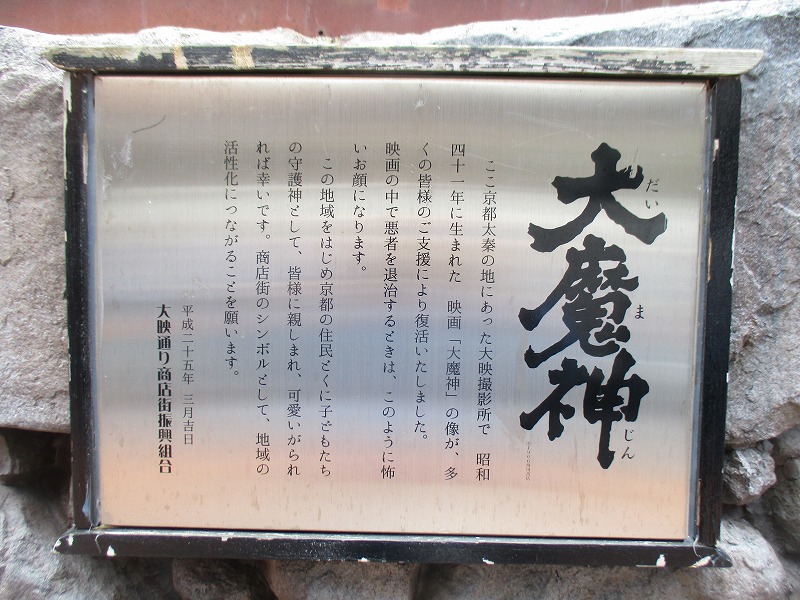 大魔神
だいまじん
ここ京都太秦の地にあった大映撮影所で 昭和
四十一年に生まれた 映画「大魔神」の像が、多
くの皆様のご支援により復活いたしました。
映画の中で悪者を退治するときは、このように怖
いお顔になります。
この地域をはじめ京都の住民とくに子どもたち
の守護神として、皆様に親しまれ、可愛いがられ
れば幸いです。商店街のシンボルとして、地域の
活性化につながることを願います。
平成二十五年 三月吉日
大映通り商店街振興組合